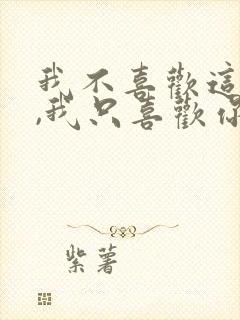 我不喜歡這
,我只喜歡你
紫薯